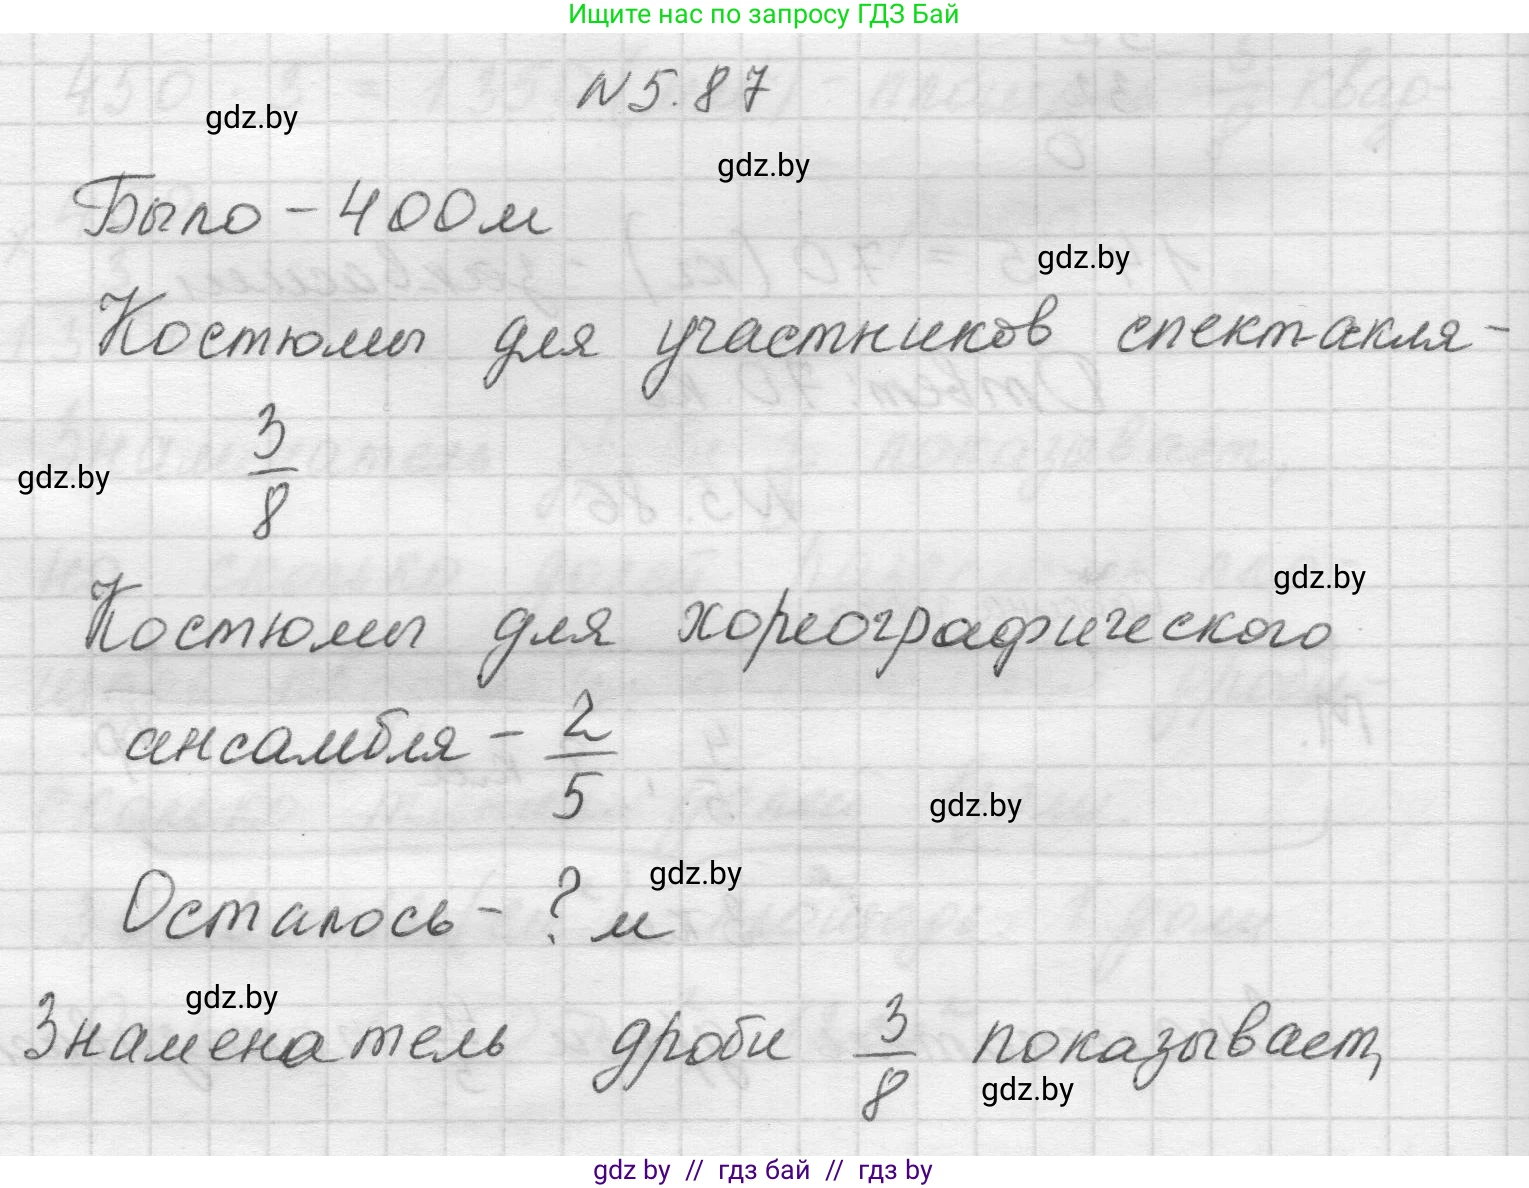 Ищите нас по запросу ГДЗ Бай
N 5.87
gdz.by
gdz.by
Было - 400 м
gdz.by
Костюмы для участников спектакля -
3/8
gdz.by
gdz.by
Костюмы для хореографического
ансамбля - 2/5
gdz.by
gdz.by
Осталось - ? м
gdz.by
Знаменатель дроби 3/8 показывает,
gdz.by
gdz by // гдз бай // гдз by